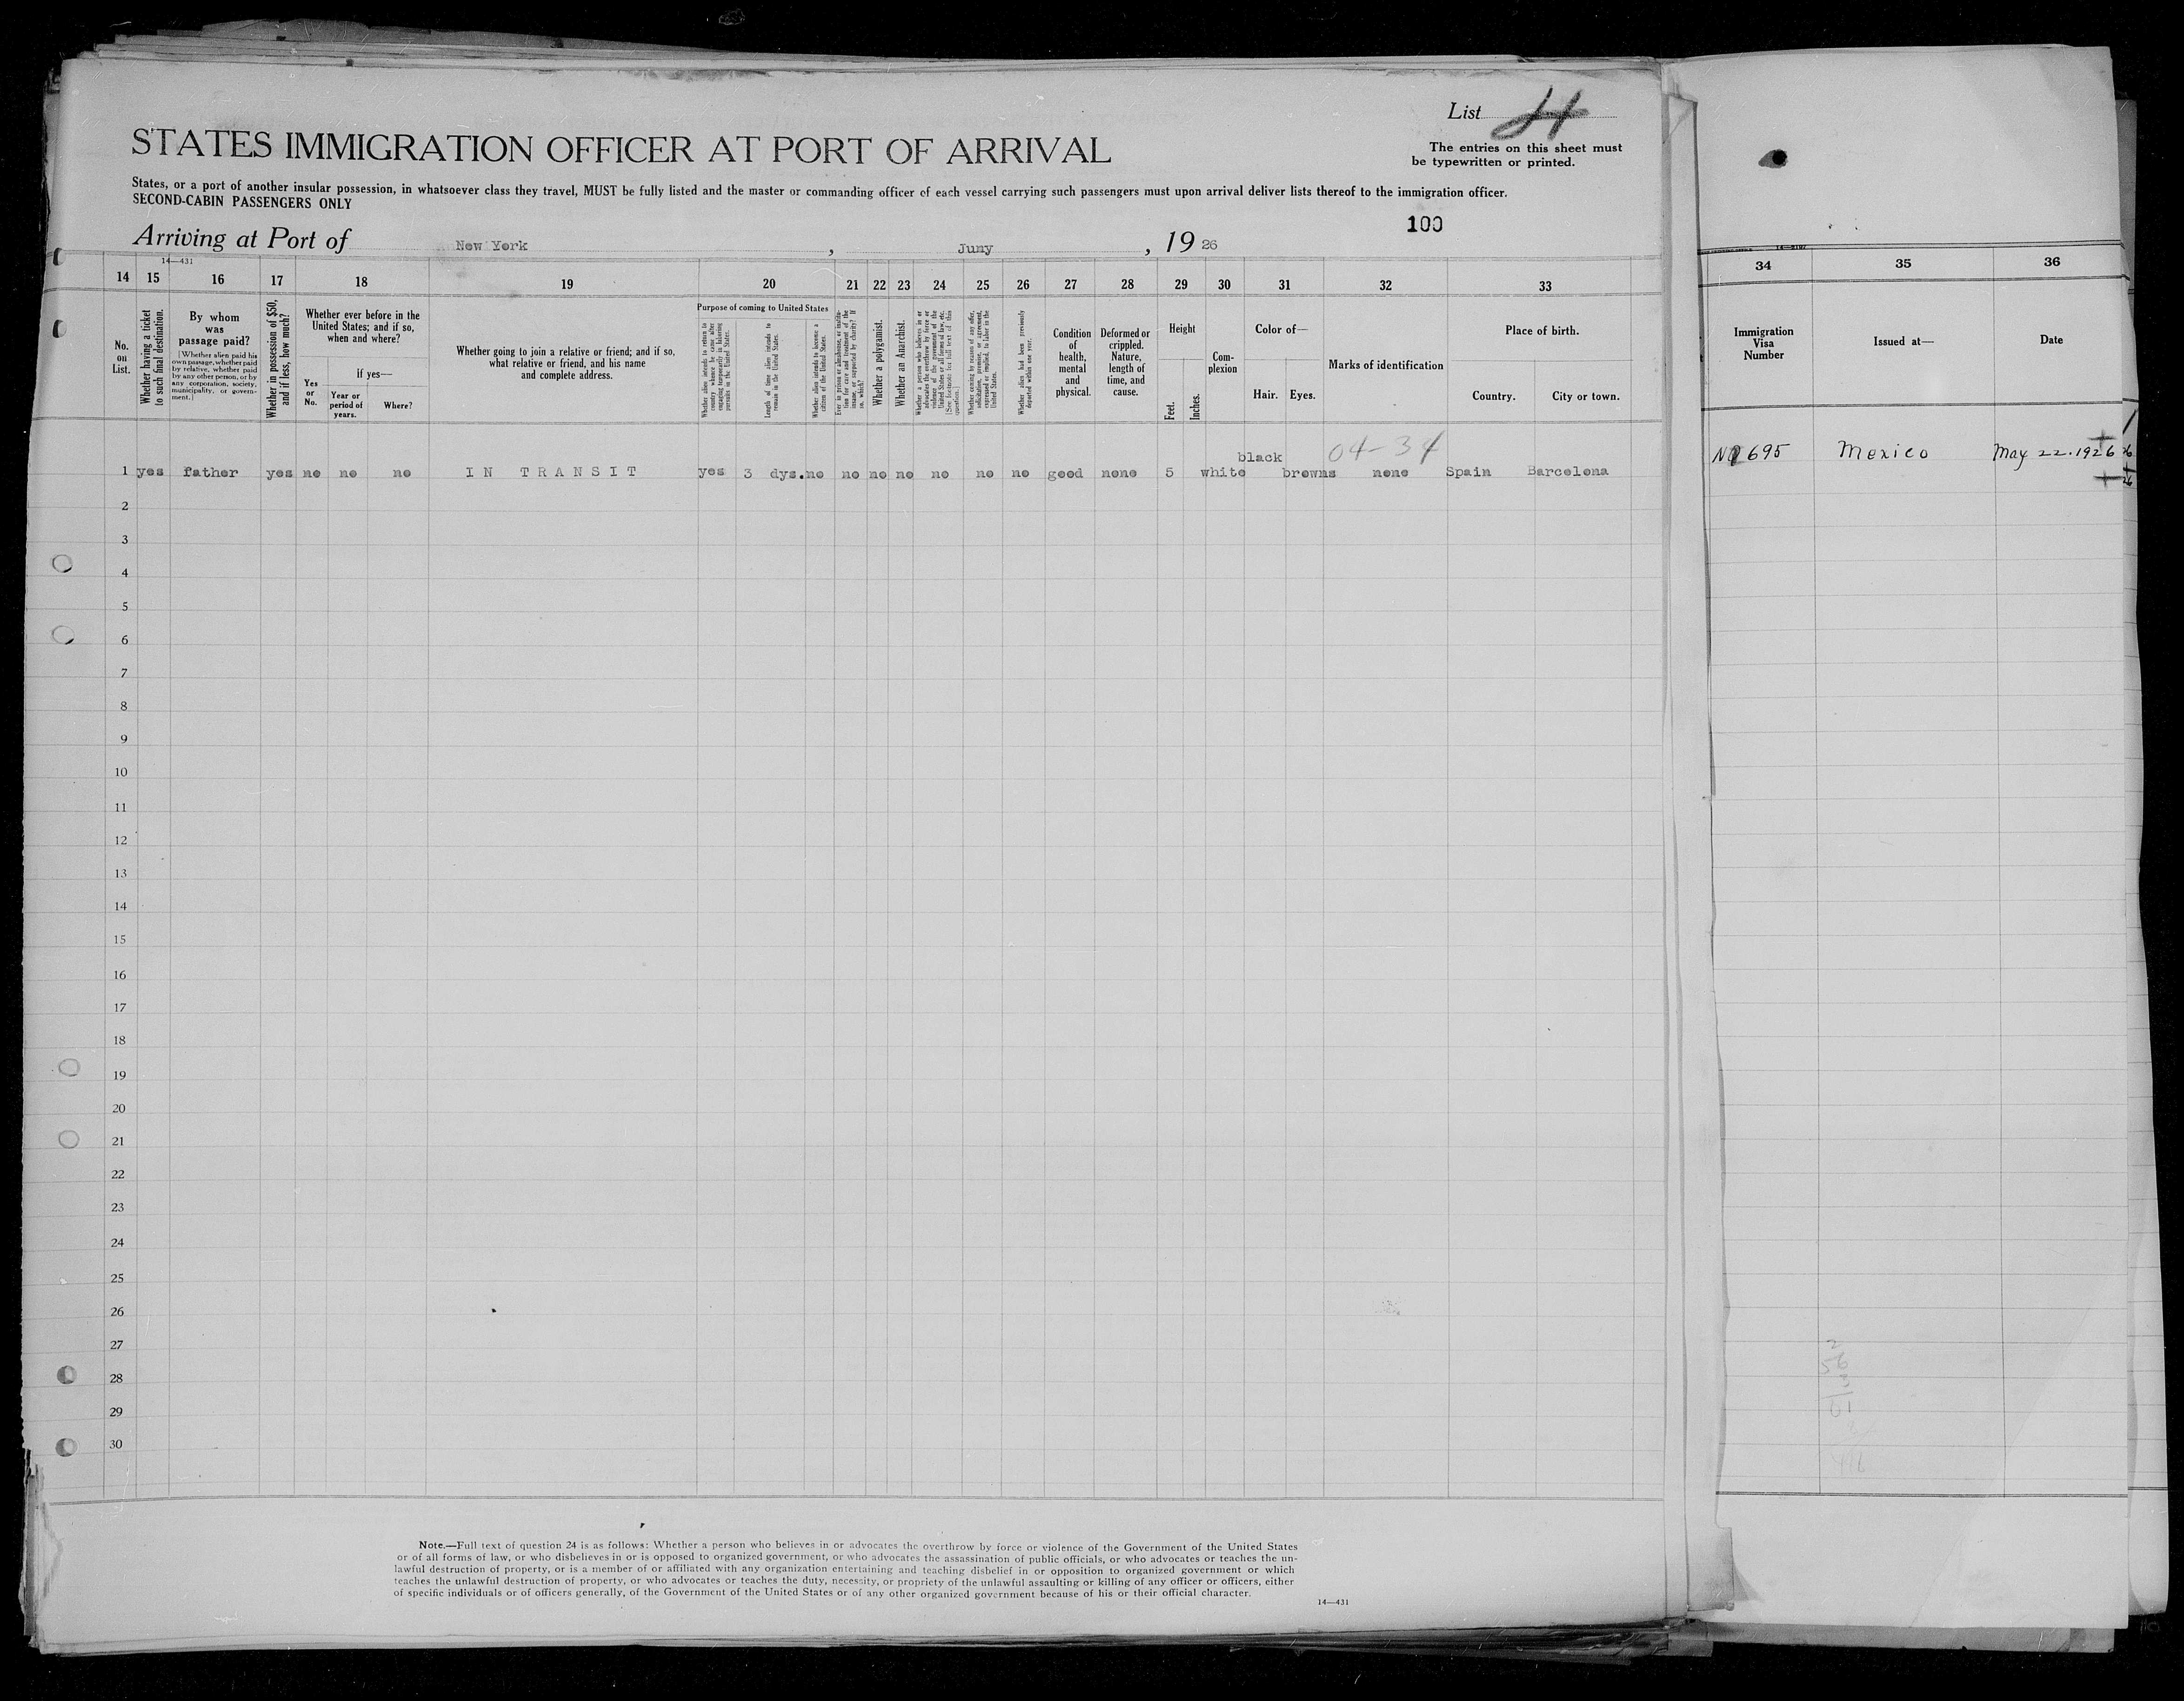 List 4
STATES IMMIGRATION OFFICER AT PORT OF ARRIVAL
The entries on this sheet must
be typewritten or printed.
States, or a port of another insular possession, in whatsoever class they travel, MUST be fully listed and the master or commanding officer of each vessel carrying such passengers must upon arrival deliver lists thereof to the immigration officer.
SECOND-CABIN PASSENGERS ONLY
100
Arriving at Port of New York, Juny, 19 26
14—431
14 15 16 17 18 19 20 21 22 23 24 25 26 27 28 29 30 31 32 33 34 35 36
No. on List.
Whether having a ticket to such final destination.
By whom was passage paid?
[Whether alien paid his own passage, whether paid by relative, whether paid by any other person, or by any corporation, society, municipality, or government.]
Whether in possession of $50, and if less, how much?
Whether ever before in the United States; and if so, when and where?
Yes or No.
If yes—
Year or period of years.
Where?
Whether going to join a relative or friend; and if so, what relative or friend, and his name and complete address.
Purpose of coming to United States
Whether alien intends to return to country whence he came after engaging temporarily in laboring pursuits in the United States.
Length of time alien intends to remain in the United States.
Whether alien intends to become a citizen of the United States.
Ever in prison or almshouse, or institution for care and treatment of the insane, or supported by charity? If so, which?
Whether a polygamist.
Whether an Anarchist.
Whether a person who believes in or advocates the overthrow by force or violence of the Government of the United States or all forms of law, etc. [See footnote for full text of this question.]
Whether coming by reason of any offer, solicitation, promise, or agreement, expressed or implied, to labor in the United States.
Whether alien had been previously deported within one year.
Condition of health, mental and physical.
Deformed or crippled. Nature, length of time, and cause.
Height
Feet. Inches.
Complexion
Color of—
Hair. Eyes.
Marks of identification
Place of birth.
Country. City or town.
Immigration Visa Number
Issued at—
Date
04-34
black
1 yes father yes no no no IN TRANSIT yes 3 dys. no no no no no no no good none 5 white browns none Spain Barcelona No 695 Mexico May 22. 1926
2
3
4
5
6
7
8
9
10
11
12
13
14
15
16
17
18
19
20
21
22
23
24
25
26
27
28
29
30
Note.—Full text of question 24 is as follows: Whether a person who believes in or advocates the overthrow by force or violence of the Government of the United States
or of all forms of law, or who disbelieves in or is opposed to organized government, or who advocates the assassination of public officials, or who advocates or teaches the un-
lawful destruction of property, or is a member of or affiliated with any organization entertaining and teaching disbelief in or opposition to organized government or which
teaches the unlawful destruction of property, or who advocates or teaches the duty, necessity, or propriety of the unlawful assaulting or killing of any officer or officers, either
of specific individuals or of officers generally, of the Government of the United States or of any other organized government because of his or their official character.
14—431